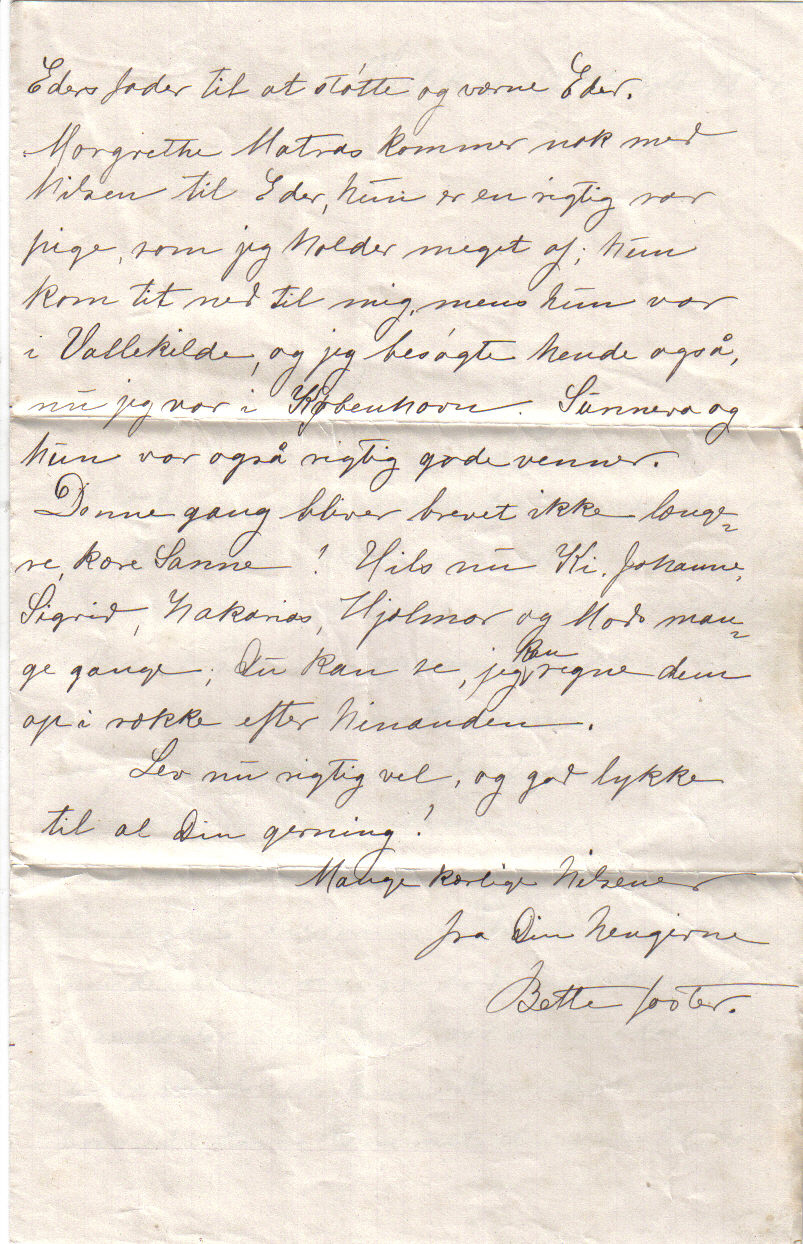 Eders fader til at støtte og værne Eder.
Margrethe Matras kommer nok med
hilsen til Eder, hun er en rigtig rar
pige, som jeg holder meget af; hun
kom tit ned til mig, mens hun var
i Vallekilde, og jeg besøgte hende også,
nu jeg var i København. Sunneva og
hun var også rigtig gode venner.
Denne gang bliver brevet ikke længe=
re, kære Sanne! Hils nu Ki. Johanne,
Sigrid, Zakarias, Hjalmar og Mads man=
ge gange; Du kan se, jeg kan regne dem
op i række efter hinanden.
Lev nu rigtig vel, og god lykke
til al Din gerning!
Mange kærlige hilsener
fra Din hengivne
Bette faster.